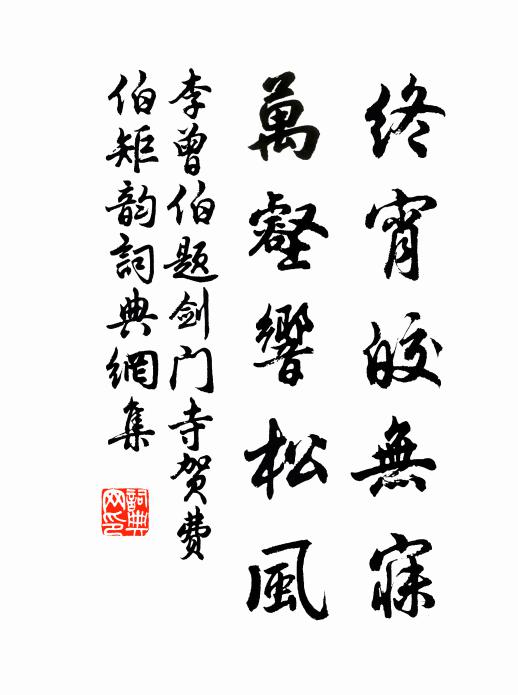 終宵皎無寐
萬壑響松風
李曾伯题剑门寺贺费
伯矩韵詞典網集
詞典网印